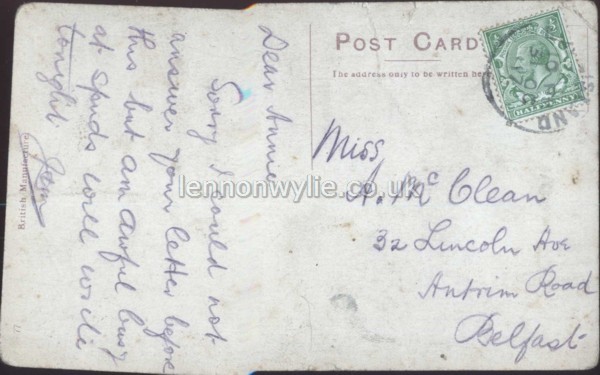 POST CARD
The address only to be written here
HALFPENNY
Dear Annie
Sorry I could not
answer your letter before
this but am awful busy
at spuds will write
tonight.
British Manufacture
17
Miss
A. Mc Clean
32 Lincoln Ave
Antrim Road
Belfast
lennonwylie.co.uk